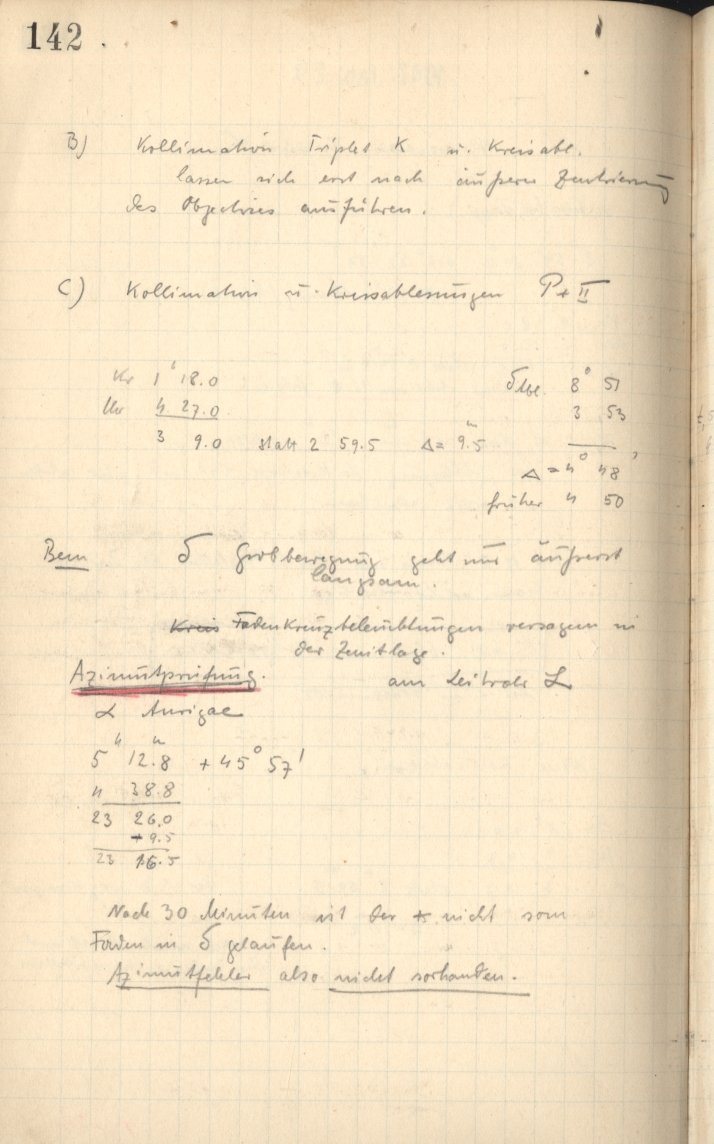 142
B) Kollimation Triplet K u. Kreisabl.
lassen sich erst nach äußeren Zentrierung
des Objectives ausführen.
C) Kollimation u. Kreisablesungen P+II
Kr 1h 18.0
Uhr 4 27.0
3 9.0 statt 2 59.5 Δ= 9.5m
8° 51
3 53
Δ=4° 48'
früher 4 50
Bem δ Grobbewegung geht nur äußerst
langsam.
Kreis Fadenkreuzbeleuchtungen versagen in
der Zenitlage.
Azimutprüfung. am Leitrohr L
α Aurigae
5h 12.8m +45° 57'
4 38.8
23 26.0
+9.5
23 16.5
Nach 30 Minuten ist der * nicht vom
Faden in δ gelaufen.
Azimutfehler also nicht vorhanden.